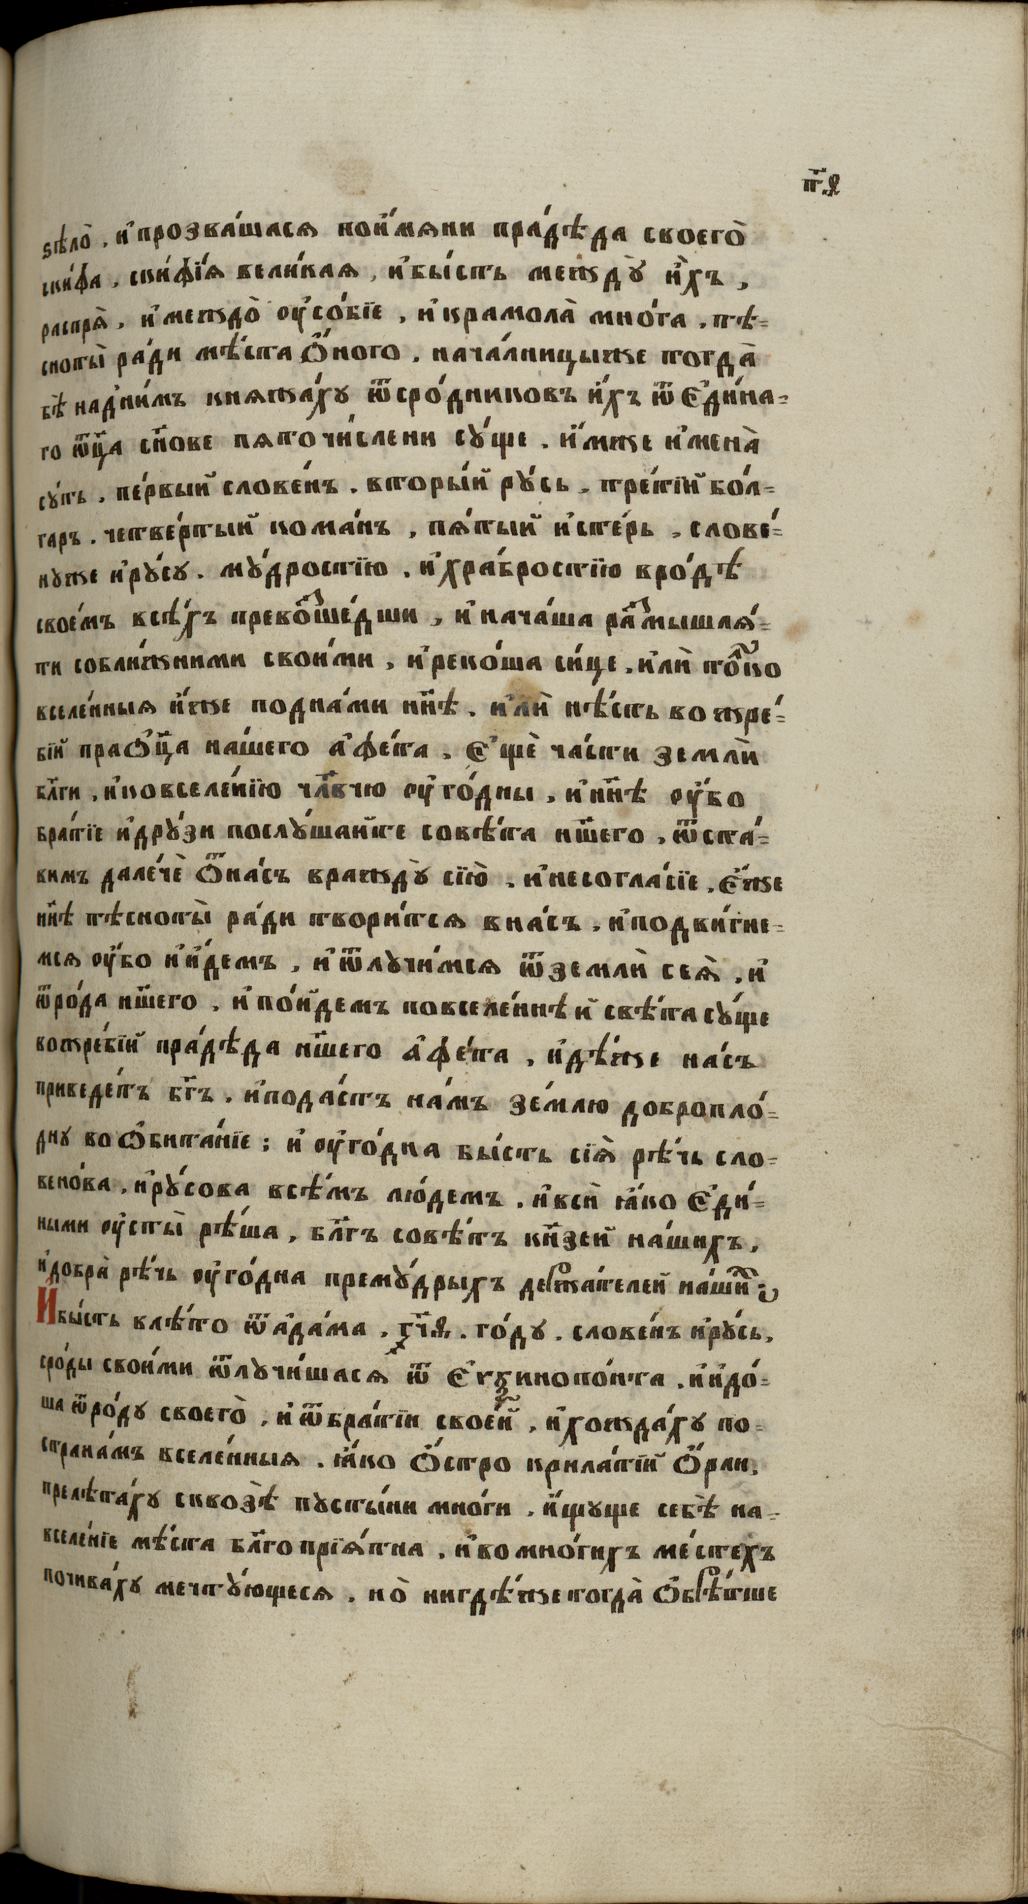 п҃ѳ
ѕѣло̀ . и҆прозва́шася пои҆мяни пра́дѣда своего̀
ски́фа . ски́фїя вели́кая , и҆бы́сть между̀ и҆́хъ ,
распря̀ . и҆междо̀ ᲂу҆со́бїе , и҆крамола̀ мно́га . тѣ=
сноты̀ ра́ди мѣ́ста ѻ҆́ного . нача́лницыже тогда̀
бѣ̀ надни́мъ княжа́ху ѿсро́дниковъ и҆́хъ ѿ Є҆ди́на=
го ѿц҃а сн҃ове пяточи́слени су́ще . и҆́мже и҆мена̀
су́ть . пе́рвый слове́нъ . вторы́й ру́сь . тре́тїй бо́л=
гаръ . четве́ртый кома́нъ , пя́тый и҆сте́рь , слове́=
нуже и҆ру́су . му́дростїю . и҆хра́бростїю вро́дѣ
свое́мъ всѣ́хъ превоⷥше́дши , и҆ нача́ша раⷥмышля́=
ти собли́жними свои́ми , и҆реко́ша си́це . и҆лѝ то́ко
вселе́нныя и҆́же подна́ми нн҃ѣ . и҆лѝ нѣ́сть вожре́=
бїй праѻц҃а на́шего а҆фе́та . Є҆щѐ ча́сти землѝ
бл҃ги . и҆ковселе́нїю чл҃вчю ᲂу҆го́дны , и҆нн҃ѣ ᲂу҆́бо
бра́тїе и҆дру́зи послу́шайте совѣ́та нш҃его , ѿста́=
вимъ дале́чѐ ѿна́съ вражду̀ сїю̀ . и҆несогла́сїе . Є҆́же
нн҃ѣ тѣсноты̀ ра́ди твори́тся вна́съ . и҆подви́гне=
мся ᲂу҆́бо и҆и҆́демъ , и҆ѿлучи́мся ѿземлѝ сея̀ . и҆
ѿро́да нш҃его . и҆по́йдемъ повселе́ннѣй свѣ́та су́ще
вожре́бїй пра́дѣда нш҃его а҆фе́та , и҆дѣ́же на́съ
приведе́тъ бг҃ъ . и҆пода́стъ на́мъ зе́млю доброплó=
дну воѻ҆бита́нїе ; и҆ ᲂу҆го́дна бы́сть сїя̀ рѣ́чь сло=
вено́ва . и҆ру́сова всѣ́мъ лю́демъ . и҆всѝ ꙗ҆́ко Є҆ди́=
ными ᲂу҆сты̀ рѣ́ша , бл҃гъ совѣ́тъ кн҃зей на́шихъ ,
и҆добра̀ рѣ́чь ᲂу҆го́дна прему́дрыхъ держа́телей на́шиⷯ
И҆бы́сть влѣ́то ѿа҆да́ма . ҂гч҃ѳ . го́ду . слове́нъ и҆ру́сь ,
сро́ды свои́ми ѿлучи́шася ѿ Є҆ѵѯинопо́нта . и҆и҆до́=
ша ѿро́ду своего̀ , и҆ ѿбра́тїи свое́й , и҆хожда́ху по=
страна́мъ вселе́нныя . ꙗ҆́ко ѻ҆́стро крила́тїй ѻ҆́рли ,
прелѣта́ху сквозѣ̀ пусты́ни мно́ги . и҆́щуще себѣ̀ на=
вселе́нїе мѣ́ста бл҃гопрїя́тна . и҆вомно́гихъ ме́стехъ
почива́ху мечту́ющеся . но̀ нигдѣ́же тогда̀ ѻ҆брѣ́тше